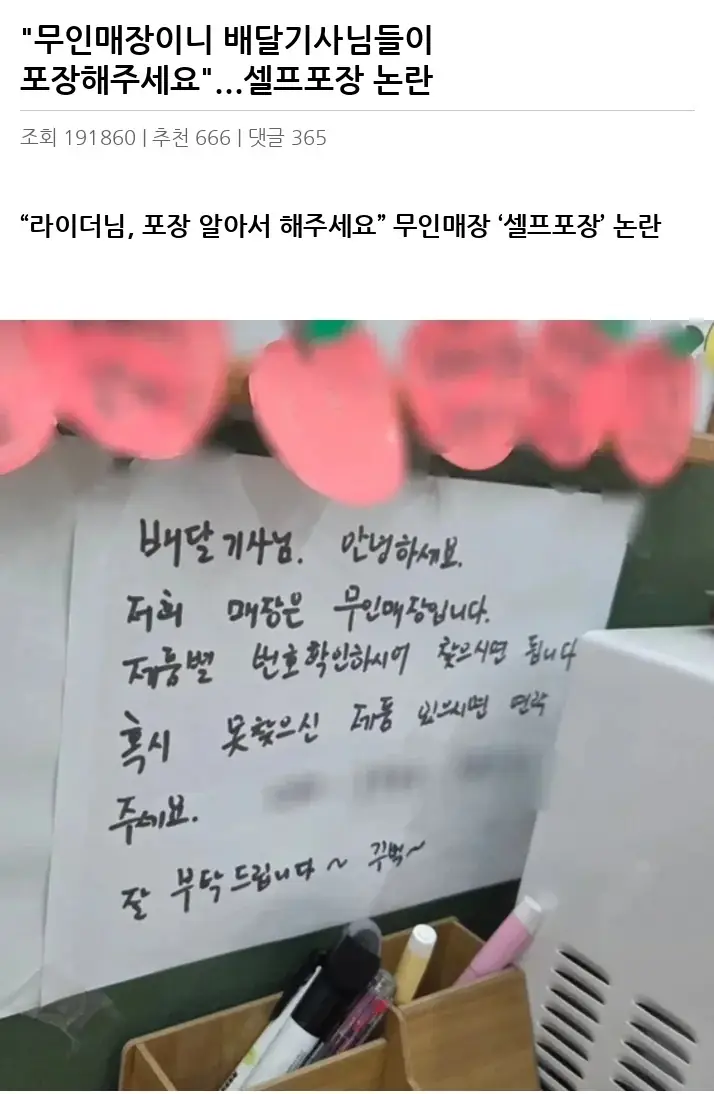 "무인매장이니 배달기사님들이
포장해주세요"...셀프포장 논란
조회 191860 | 추천 666 | 댓글 365
“라이더님, 포장 알아서 해주세요” 무인매장 ‘셀프포장’ 논란
배달기사님. 안녕하세요.
저희 매장은 무인매장입니다.
제품별 번호확인하시어 찾으시면 됩니다
혹시 못찾으신 제품 있으시면 연락
주세요.
잘 부탁드립니다~ 꾸벅~